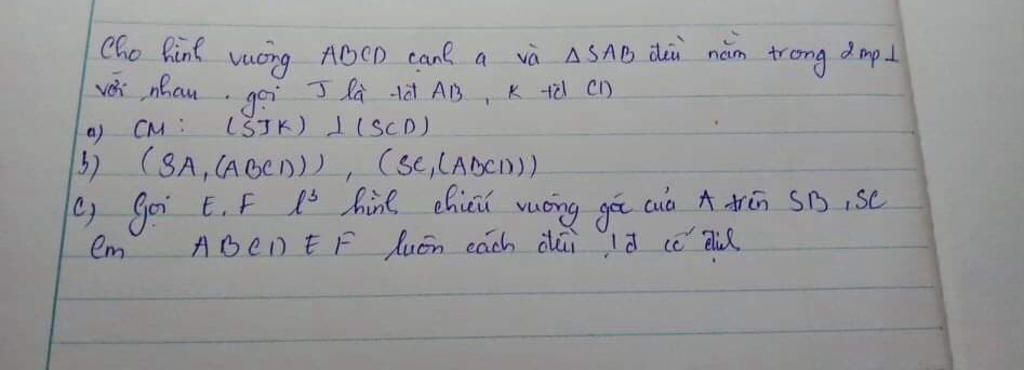 Cho hình vuông ABCD cạnh a và ΔSAB đều nằm trong 2 mp ⊥
với nhau. gọi J là tđ AB, K tđ CD
a) CM: (SJK) ⊥ (SCD)
b) (SA,(ABCD)), (SC,(ABCD))
c) Gọi E, F l² hình chiếu vuông góc của A trên SB, SC
Cm ABCDEF luôn cách đều 1 đ cố định